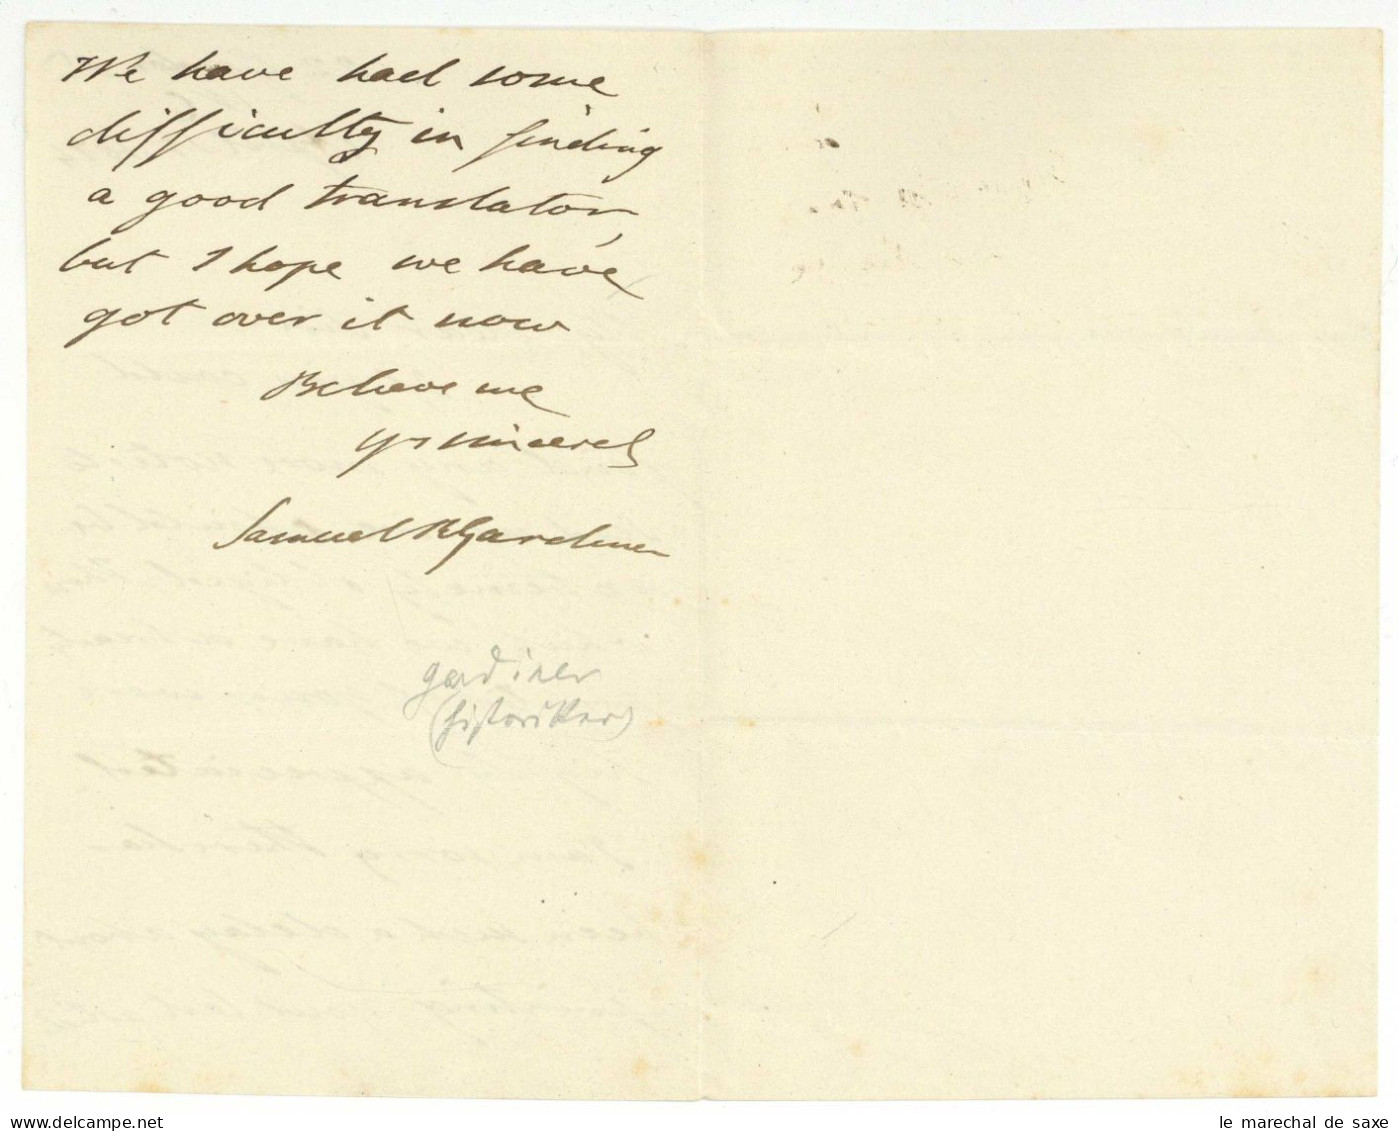 We have had some
difficulty in finding
a good translator,
but I hope we have
got over it now
Believe me
yrs sincerely
Samuel R Gardiner
gardiner
(Historiker)
le marechal de saxe